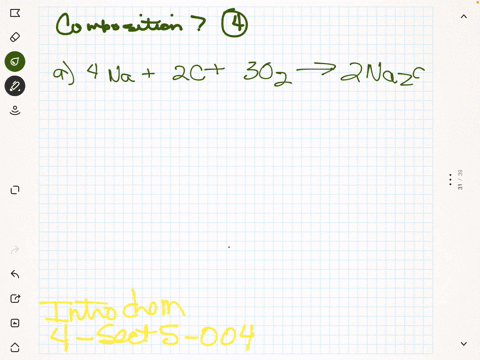 Composition > ④
a) 4 Na + 2C + 3O2 → 2Na2C
Intro chom
4 - Sect 5 - 004
31 / 30